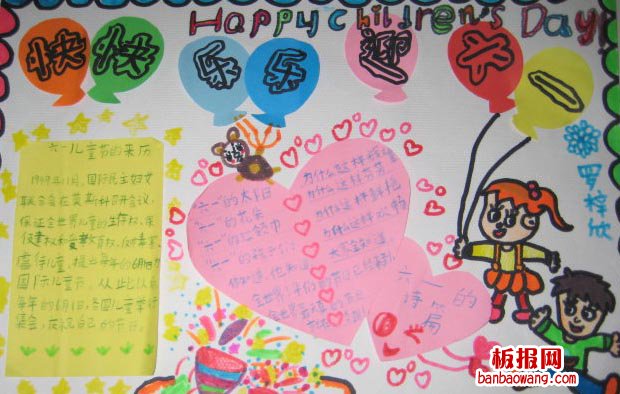 Happy Children's Day
快快乐乐迎六一
六一儿童节的来历
1949年11月,国际民主妇女
联合会在莫斯科召开会议,
保证全世界儿童的生存权、保
健权和受教育权,
虐待儿童,提出每年的6月1日为
国际儿童节,从此以后
每年的6月1日,各国儿童举行
集会,庆祝自己的节日。
"六一"的太阳
为什么这样辉煌
"六一"的花朵
为什么这样芬芳
"六一"的红领巾
为什么这样鲜艳
"六一"的孩子们
为什么这样欢畅
你知道,他知道,
大家全知道,
全世界
六一的
诗
罗梓欣
板报网
banbaowang.com